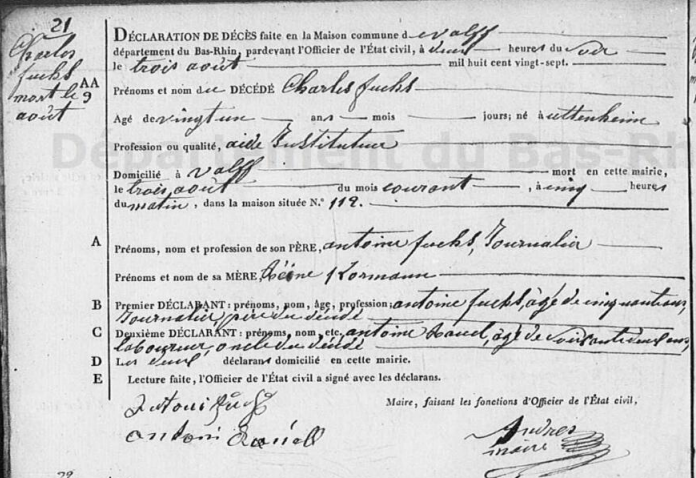 21
Charles
fuchs
mort le
AA
9
août
DÉCLARATION DE DÉCÈS faite en la Maison commune d e valff
département du Bas-Rhin, pardevant l'Officier de l'État civil, à deux heures du soir
le trois août mil huit cent vingt-sept.
Prénoms et nom du DÉCÉDÉ Charles fuchs
Agé de vingt un ans mois jours; né à uttenheim
Profession ou qualité, aide Instituteur
Département du Bas-Rh
Domicilié à valff mort en cette mairie,
le trois août du mois courant , à cinq heures
du matin, dans la maison située N.º 112.
A Prénoms, nom et profession de son PÈRE, antoine fuchs, Journalier
Prénoms et nom de sa MÈRE, Kormann
B Premier DÉCLARANT : prénoms, nom, âge, profession, antoine fuchs, âgé de cinquante ans,
Journalier, père du décédé
C Deuxième DÉCLARANT : prénoms, nom, etc. antoine âgé de soixante deux ans,
laboureur, oncle du décédé
D Les deux déclarans domicilié en cette mairie.
E Lecture faite, l'Officier de l'État civil a signé avec les déclarans.
Maire, faisant les fonctions d'Officier de l'État civil,
antoni
Andres
maire